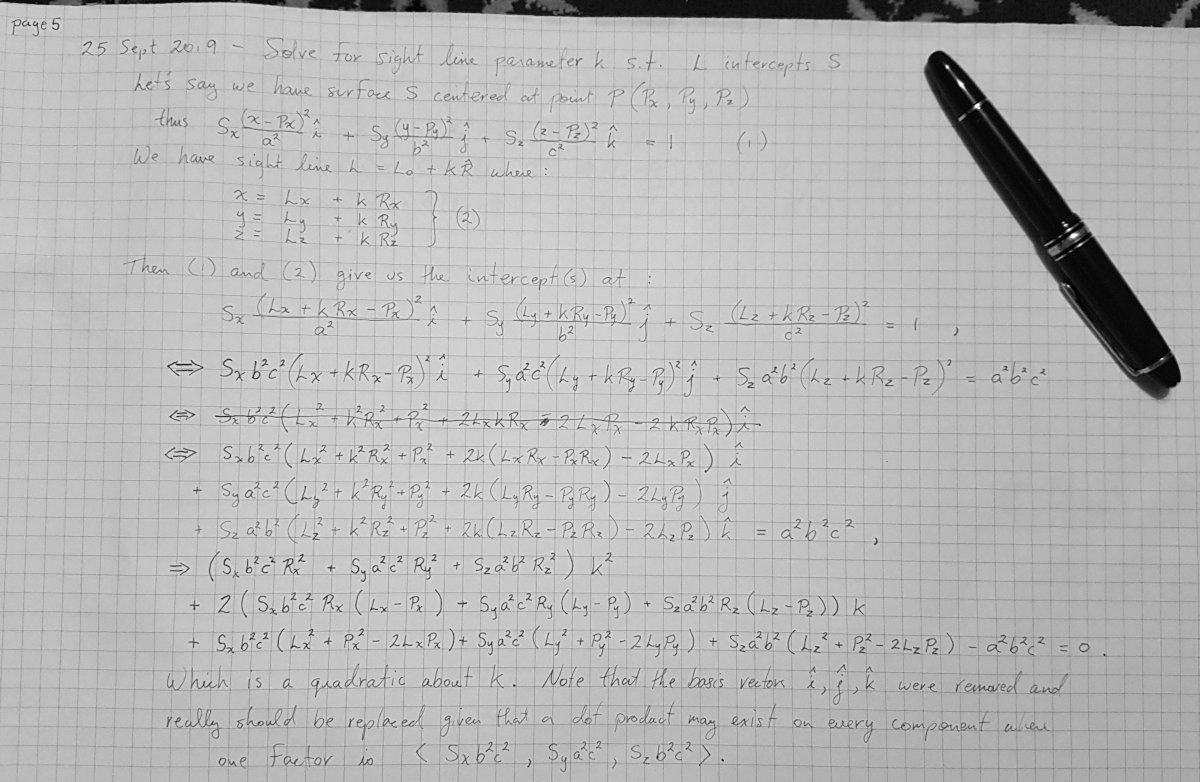 page 5
25 Sept 2019 - Solve for sight line parameter k s.t. L intercepts S
Let's say we have surface S centered at point P (Px, Py, Pz)
thus Sx (x - Px)²/a² î + Sy (y - Py)²/b² ĵ + Sz (z - Pz)²/c² k̂ = 1 (1)
We have sight line L = L₀ + kR⃗ where :
x = Lx + k Rx
y = Ly + k Ry } (2)
z = Lz + k Rz
Then (1) and (2) give us the intercept(s) at :
Sx (Lx + k Rx - Px)²/a² î + Sy (Ly + k Ry - Py)²/b² ĵ + Sz (Lz + k Rz - Pz)²/c² = 1 ,
⇔ Sx b²c² (Lx + kRx - Px)² î + Sy a²c² (Ly + kRy - Py)² ĵ + Sz a²b² (Lz + kRz - Pz)² = a²b²c²
⇔ Sx b²c² (Lx² + k²Rx² + Px² + 2LxkRx - 2LxPx - 2kRxPx) î
⇔ Sx b²c² (Lx² + k²Rx² + Px² + 2k(LxRx - PxRx) - 2LxPx) î
+ Sy a²c² (Ly² + k²Ry² + Py² + 2k(LyRy - PyRy) - 2LyPy) ĵ
+ Sz a²b² (Lz² + k²Rz² + Pz² + 2k(LzRz - PzRz) - 2LzPz) k̂ = a²b²c² ,
⇒ (Sx b²c² Rx² + Sy a²c² Ry² + Sz a²b² Rz²) k²
+ 2 (Sx b²c² Rx (Lx - Px) + Sy a²c² Ry (Ly - Py) + Sz a²b² Rz (Lz - Pz)) k
+ Sx b²c² (Lx² + Px² - 2LxPx) + Sy a²c² (Ly² + Py² - 2LyPy) + Sz a²b² (Lz² + Pz² - 2LzPz) - a²b²c² = 0 .
Which is a quadratic about k. Note that the basis vectors î, ĵ, k̂ were removed and
really should be replaced given that a dot product may exist on every component when
one factor is < Sx b²c² , Sy a²c² , Sz b²c² > .